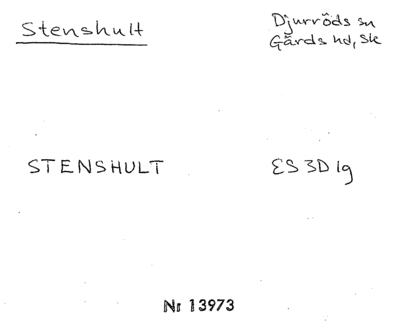 Stenshult
Djurröds sn
Gärds hd, Sk
STENSHULT
ES 3D 1g
Nr 13973